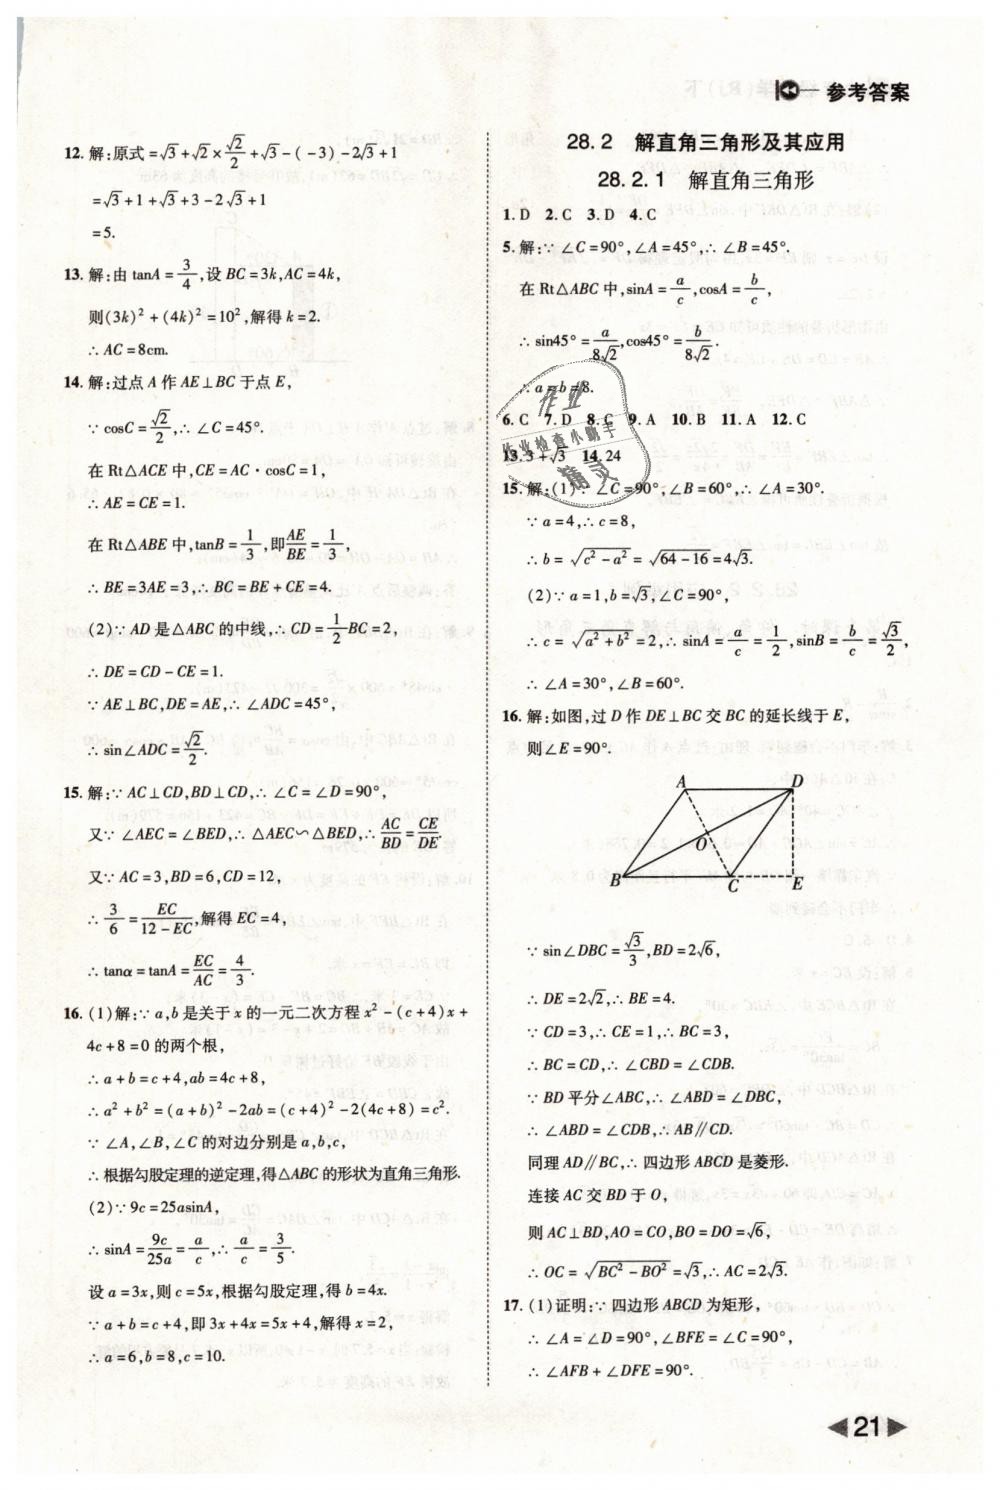 参考答案
12. 解:原式=√3+√2×√2/2+√3-(-3)-2√3+1
=√3+1+√3+3-2√3+1
=5.
13. 解:由tanA=3/4,设BC=3k,AC=4k,
则(3k)²+(4k)²=10²,解得k=2.
∴AC=8cm.
14. 解:过点A作AE⊥BC于点E,
∵cosC=√2/2,∴∠C=45°.
在Rt△ACE中,CE=AC·cosC=1,
∴AE=CE=1.
在Rt△ABE中,tanB=1/3,即AE/BE=1/3,
∴BE=3AE=3,∴BC=BE+CE=4.
(2)∵AD是△ABC的中线,∴CD=1/2BC=2,
∴DE=CD-CE=1.
∵AE⊥BC,DE=AE,∴∠ADC=45°,
∴sin∠ADC=√2/2.
15. 解:∵AC⊥CD,BD⊥CD,∴∠C=∠D=90°,
又∵∠AEC=∠BED,∴△AEC∽△BED,∴AC/BD=CE/DE.
又∵AC=3,BD=6,CD=12,
∴3/6=EC/12-EC,解得EC=4,
∴tanα=tanA=EC/AC=4/3.
16. (1)解:∵a,b是关于x的一元二次方程x²-(c+4)x+
4c+8=0的两个根,
∴a+b=c+4,ab=4c+8,
∴a²+b²=(a+b)²-2ab=(c+4)²-2(4c+8)=c².
∵∠A,∠B,∠C的对边分别是a,b,c,
∴根据勾股定理的逆定理,得△ABC的形状为直角三角形.
(2)∵9c=25asinA,
∴sinA=9c/25a=a/c,∴a/c=3/5.
设a=3x,则c=5x,根据勾股定理,得b=4x.
∵a+b=c+4,即3x+4x=5x+4,解得x=2,
∴a=6,b=8,c=10.
28.2 解直角三角形及其应用
28.2.1 解直角三角形
1. D 2. C 3. D 4. C
5. 解:∵∠C=90°,∠A=45°,∴∠B=45°.
在Rt△ABC中,sinA=a/c,cosA=b/c,
∴sin45°=a/8√2,cos45°=b/8√2.
∴a=b=8.
6. C 7. D 8. C 9. A 10. B 11. A 12. C
13. 3+√3 14. 24
15. 解:(1)∵∠C=90°,∠B=60°,∴∠A=30°.
∵a=4,∴c=8,
∴b=√c²-a²=√64-16=4√3.
(2)∵a=1,b=√3,∠C=90°,
∴c=√a²+b²=2,∴sinA=a/c=1/2,sinB=b/c=√3/2,
∴∠A=30°,∠B=60°.
16. 解:如图,过D作DE⊥BC交BC的延长线于E,
则∠E=90°.
A D
O
B C E
∵sin∠DBC=√3/3,BD=2√6,
∴DE=2√2,∴BE=4.
∵CD=3,∴CE=1,∴BC=3,
∴BC=CD,∴∠CBD=∠CDB.
∵BD平分∠ABC,∴∠ABD=∠DBC,
∴∠ABD=∠CDB,∴AB∥CD.
同理AD∥BC,∴四边形ABCD是菱形.
连接AC交BD于O,
则AC⊥BD,AO=CO,BO=DO=√6,
∴OC=√BC²-BO²=√3,∴AC=2√3.
17. (1)证明:∵四边形ABCD为矩形,
∴∠A=∠D=90°,∠BFE=∠C=90°,
∴∠AFB+∠DFE=90°.
作业
作业检查小助手
精灵
21